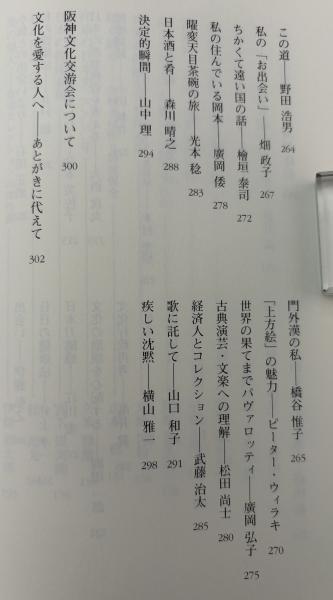 この道――野田 浩男 264
門外漢の私――橋谷 惟子 265
私の「お出会い」――畑 政子 267
「上方絵」の魅力――ピーター・ウィラキ 270
ちかくて遠い国の話――檜垣 泰司 272
世界の果てまでパヴァロッティ――廣岡 弘子 275
私の住んでいる岡本――廣岡 倭 278
古典演芸・文楽への理解――松田 尚士 280
曜変天目茶碗の旅――光本 稔 283
経済人とコレクション――武藤 治太 285
日本酒と肴――森川 晴之 288
歌に託して――山口 和子 291
決定的瞬間――山中 理 294
疾しい沈黙――横山 雅一 298
阪神文化交游会について 300
文化を愛する人へ――あとがきに代えて 302